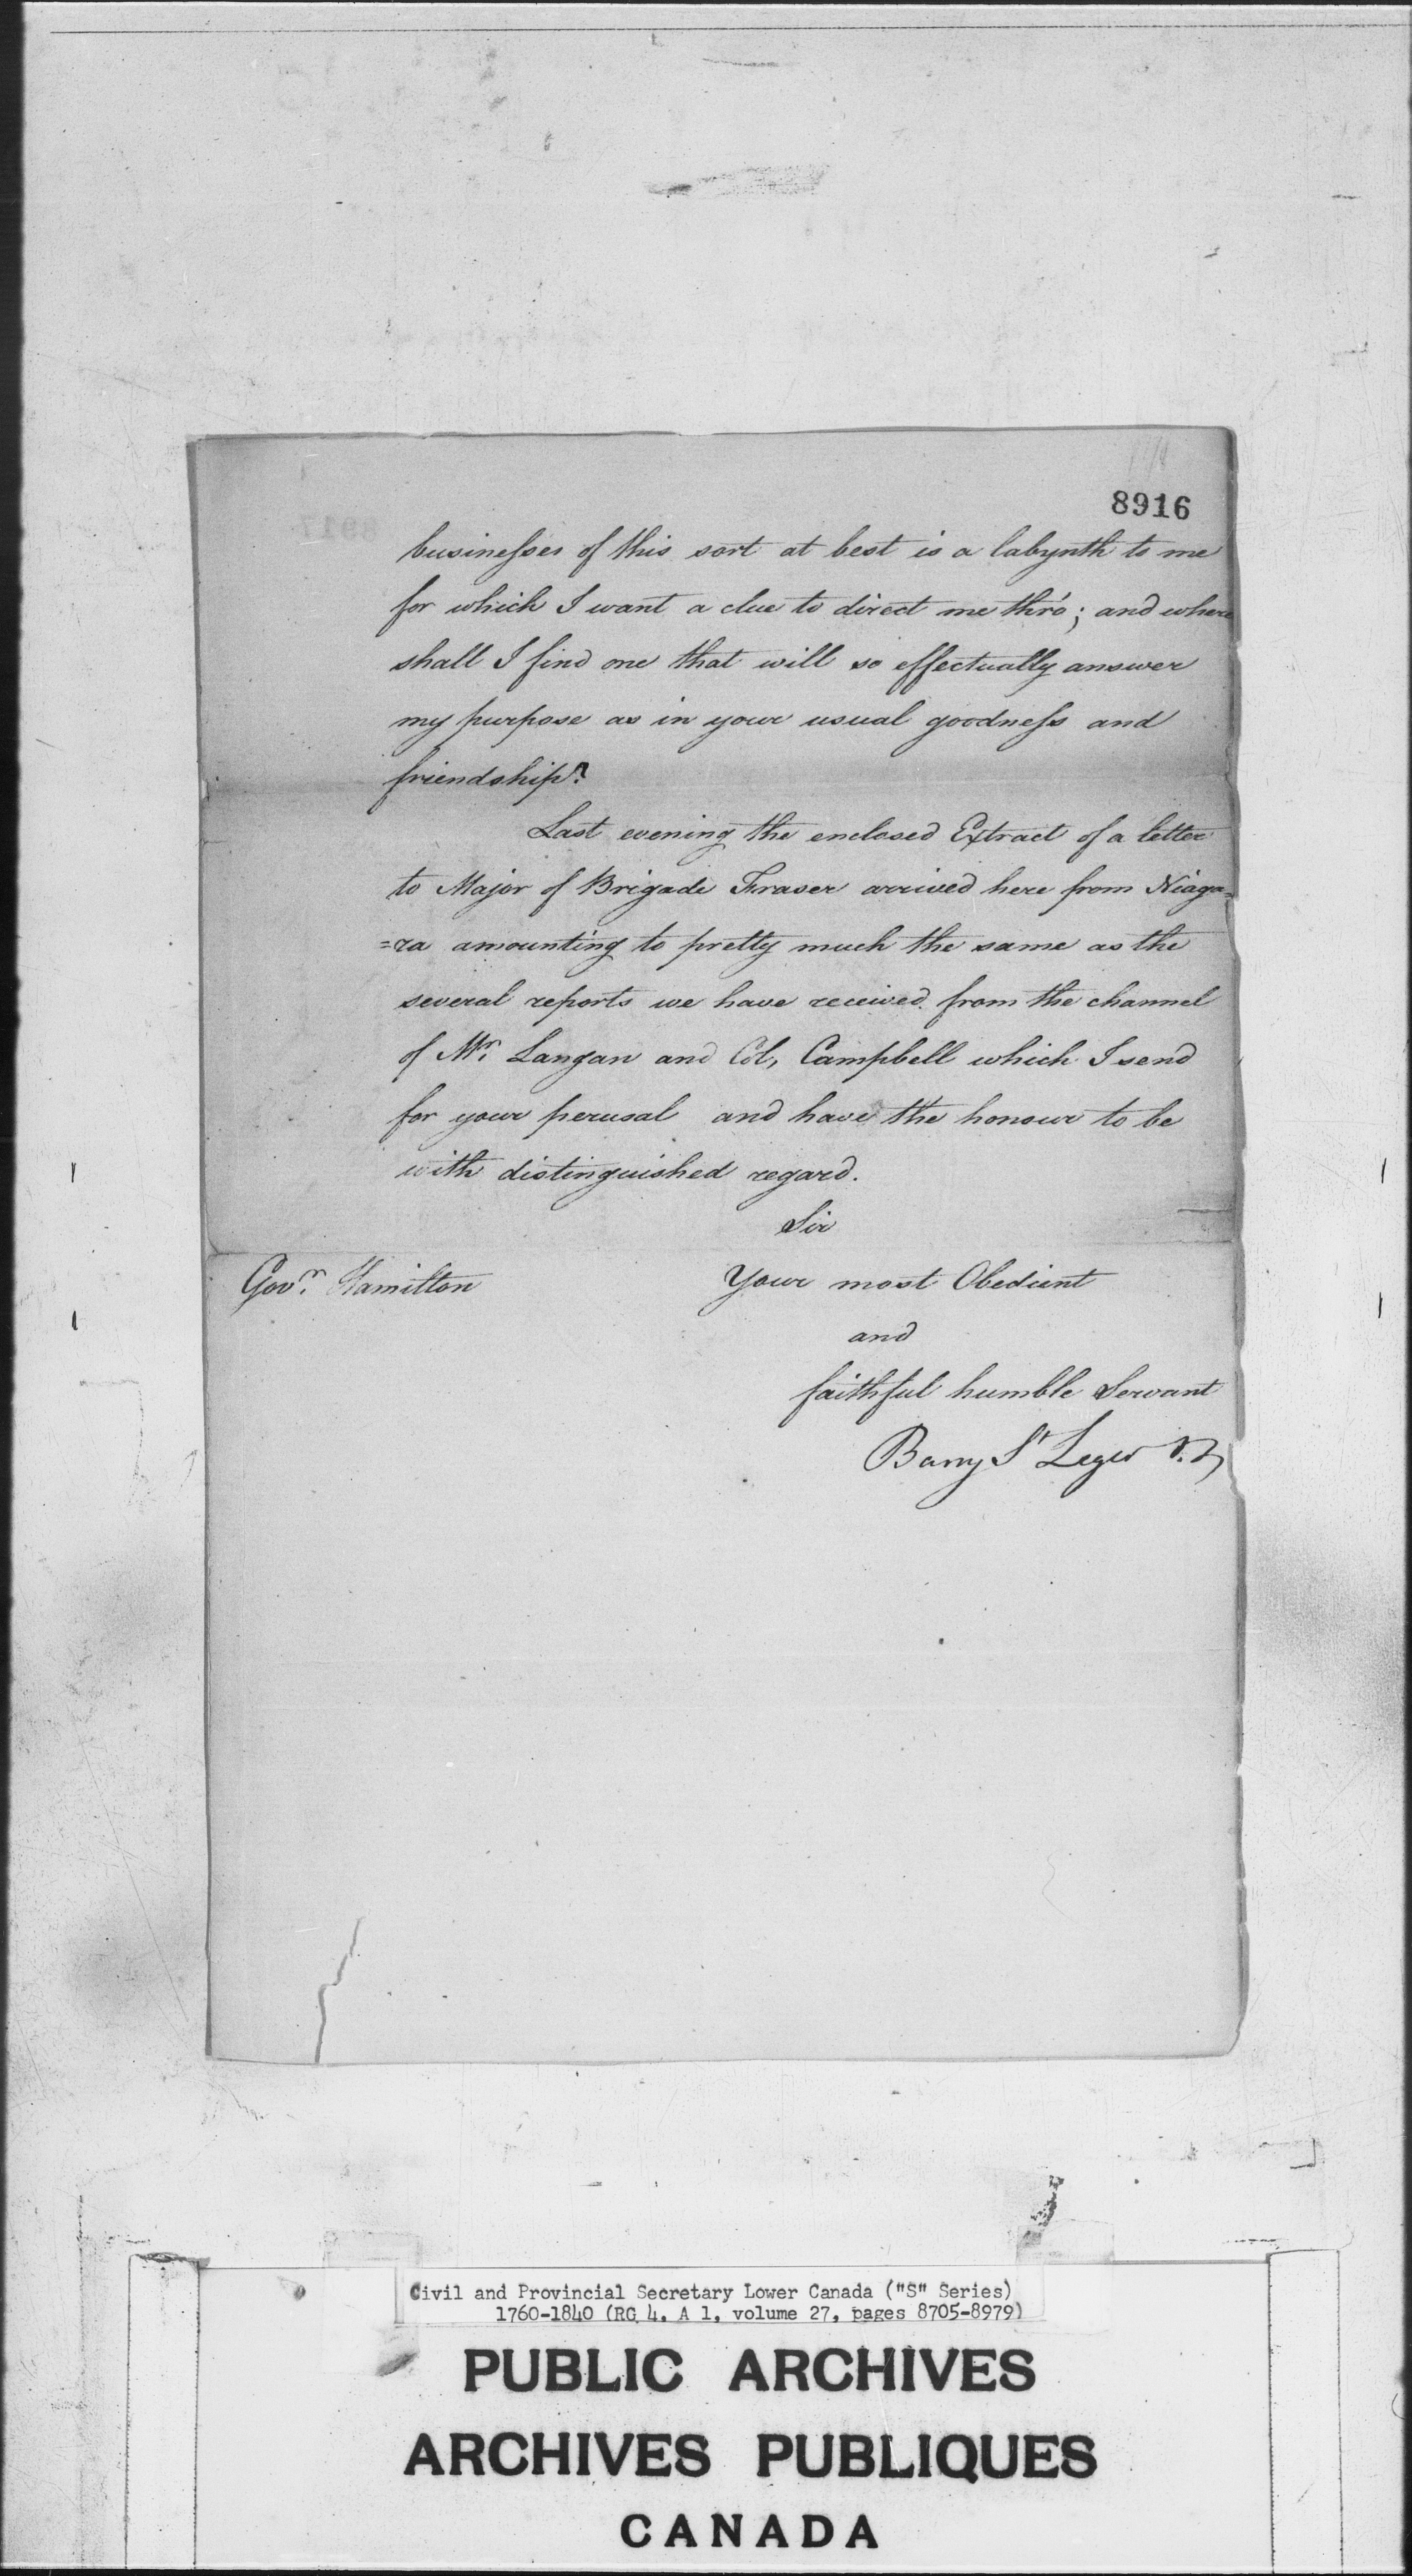 8916
businesses of this sort at best is a labynth to me
for which I want a clue to direct me thro'; and where
shall I find one that will so effectually answer
my purpose as in your usual goodness and
friendship?
Last evening the enclosed Extract of a letter
to Major of Brigade Fraser arrived here from Niaga=
=ra amounting to pretty much the same as the
several reports we have received from the channel
of Mr. Langan and Col, Campbell which I send
for your perusal and have the honour to be
with distinguished regard.
Sir
Govr. Hamilton
Your most Obedient
and
faithful humble Servant
Barry St Leger
Civil and Provincial Secretary Lower Canada ("S" Series)
1760-1840 (RG 4, A 1, volume 27, pages 8705-8979)
PUBLIC ARCHIVES
ARCHIVES PUBLIQUES
CANADA